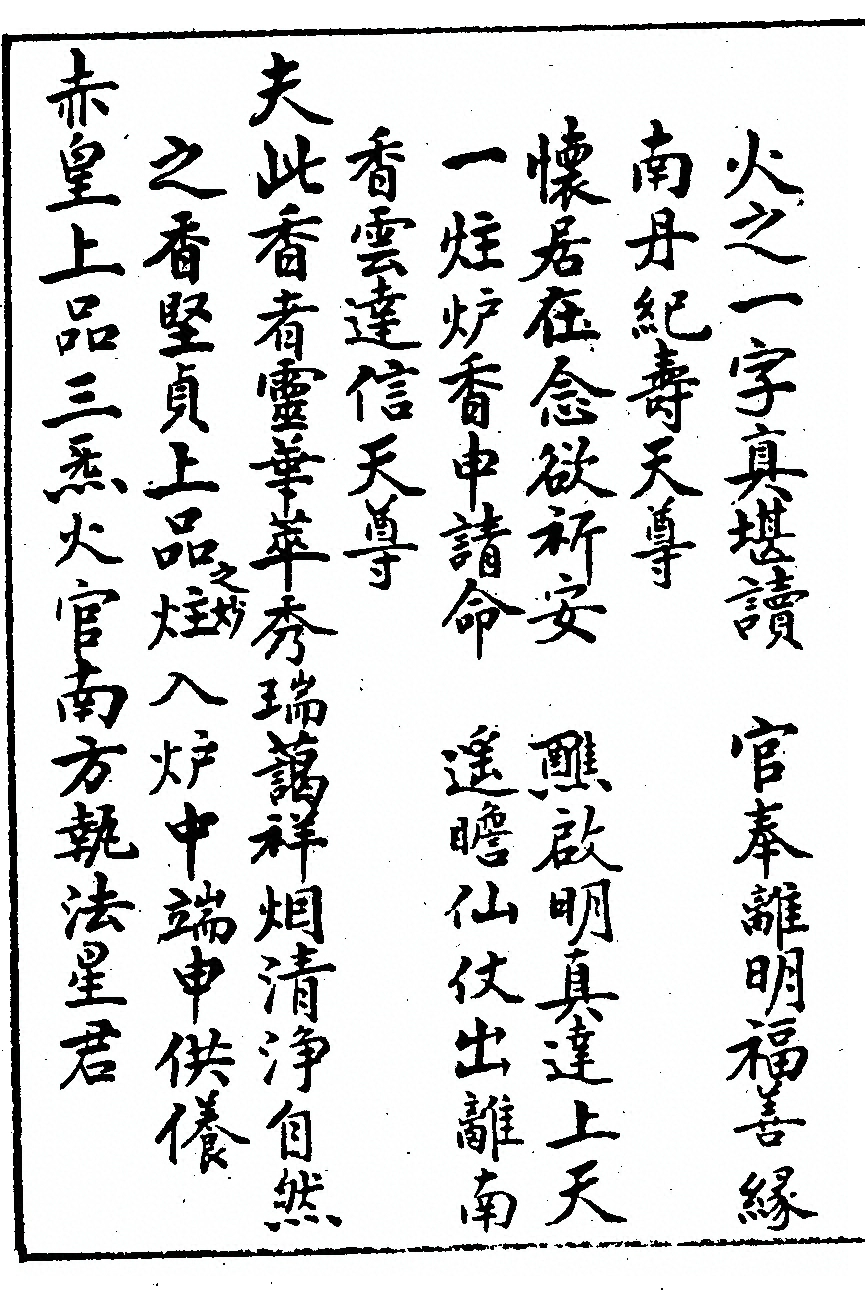 火之一字真堪讀 官奉離明福善緣
南丹紀壽天尊
懷居在念欲祈安 醮啟明真達上天
一炷炉香申請命 遙瞻仙仗出離南
香雲達信天尊
夫此香者靈華萃秀瑞藹祥烟清淨自然
之香堅貞上品之妙炷入炉中端申供養
赤皇上品三炁火官南方執法星君